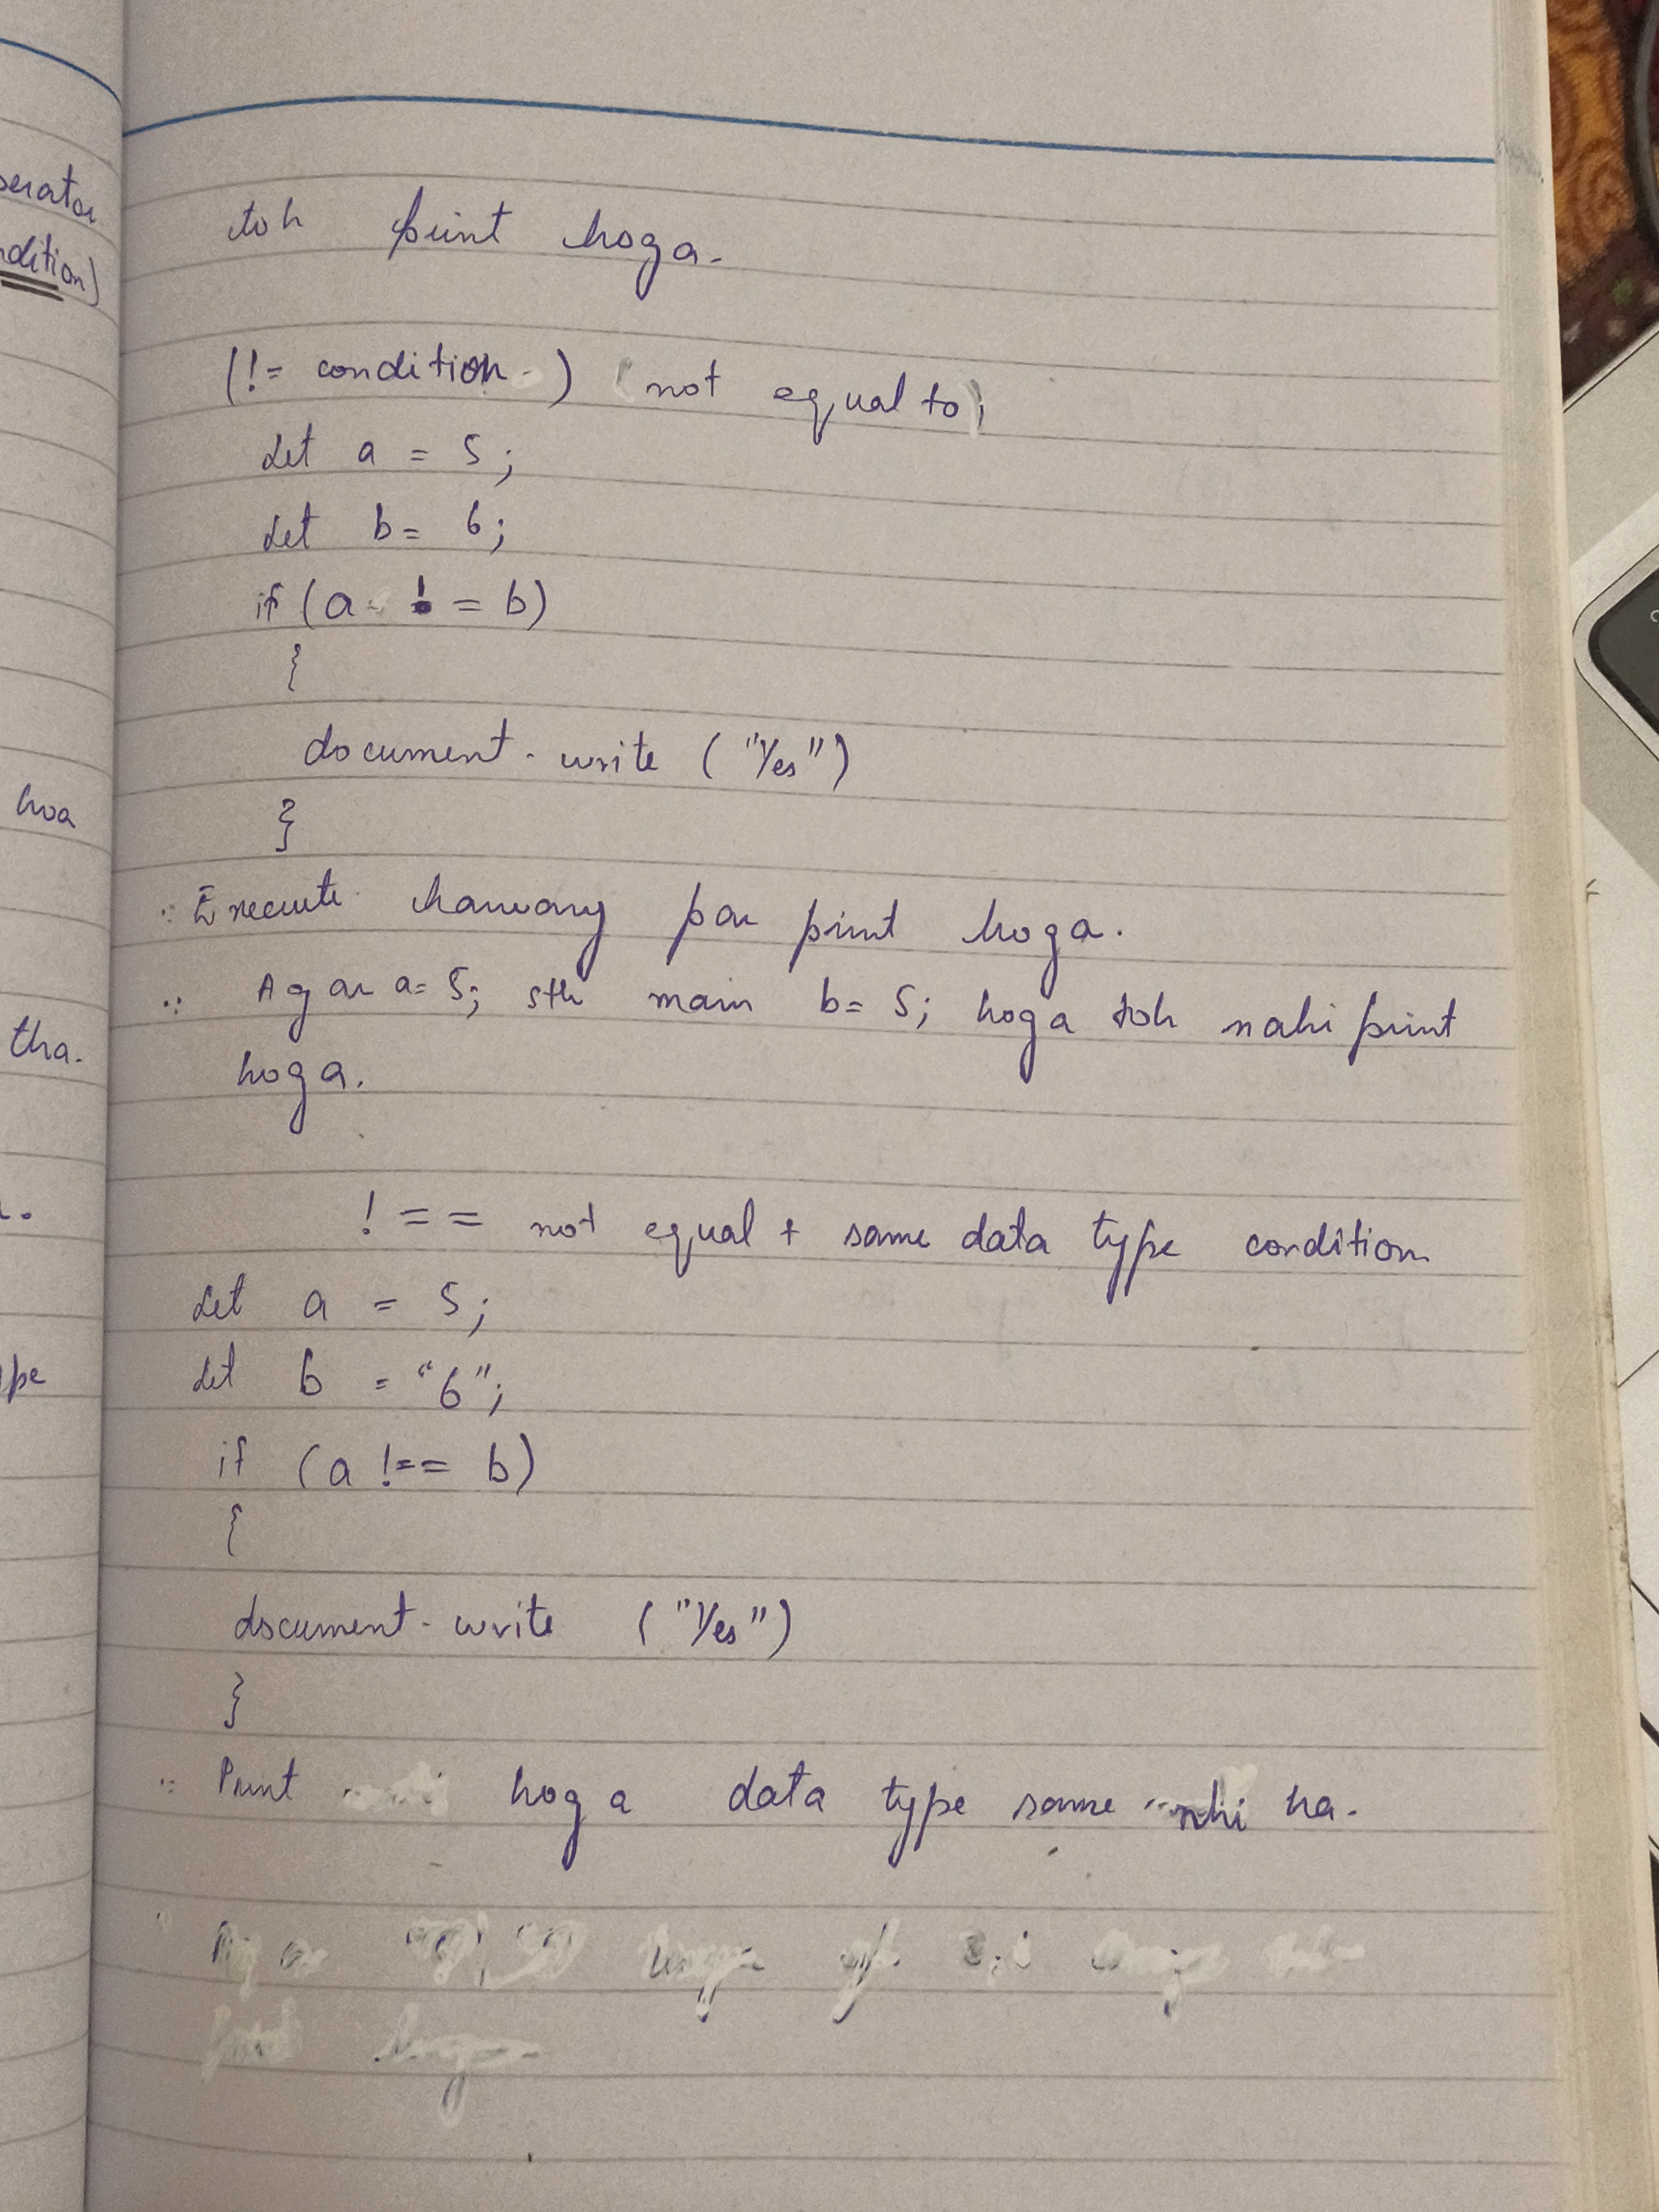 toh print hoga.
(!= condition) (not equal to)
let a = 5;
let b = 6;
if (a != b)
{
document.write ("Yes")
}
∵ Execute karwany par print hoga.
∵ Agar a= 5; sth main b= 5; hoga toh nahi print
hoga.
!== not equal + same data type condition
let a = 5;
let b = "6";
if (a !== b)
{
document.write ("Yes")
}
∵ Print hoga data type same nhi ha.
hoa
tha.